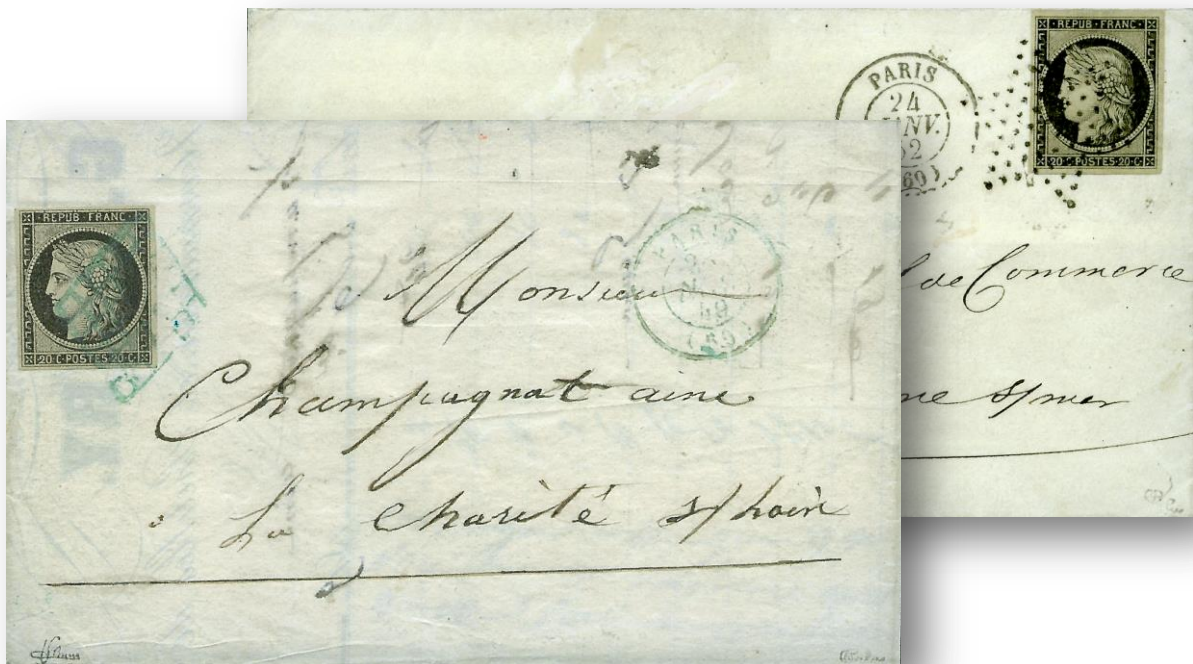 REPUB FRANC
20 C POSTES 20 C
PARIS
24
JANV.
52
(60)
de Commerce
s/mer
REPUB FRANC
20 C POSTES 20 C
PARIS
49
(60)
Monsieur
Champagnat ainé
La Charité s/Loire